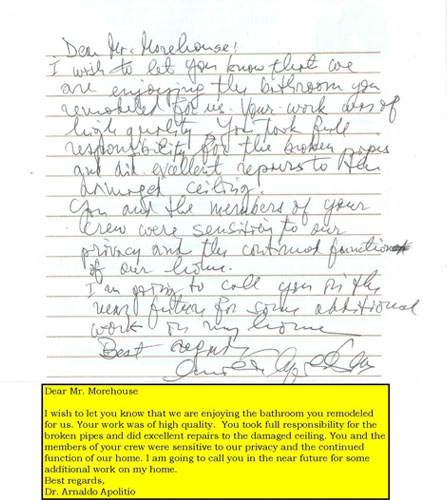 Dear Mr. Morehouse!
I wish to let you know that we
are enjoying the bathroom you
remodeled for us. Your work was of
high quality. You took full
responsibility for the broken pipes
and did excellent repairs to the
damaged ceiling.
You and the members of your
crew were sensitive to our
privacy and the continued function
of our home.
I am going to call you in the
near future for some additional
work on my home
Best regards,
Dear Mr. Morehouse
I wish to let you know that we are enjoying the bathroom you remodeled
for us. Your work was of high quality.  You took full responsibility for the
broken pipes and did excellent repairs to the damaged ceiling. You and the
members of your crew were sensitive to our privacy and the continued
function of our home. I am going to call you in the near future for some
additional work on my home.
Best regards,
Dr. Arnaldo Apolitio